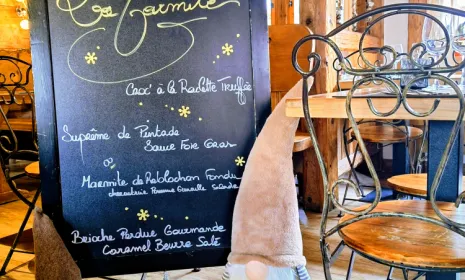 La Marmite
Croc' à la Raclette Truffée
Suprême de Pintade
Sauce Foie Gras
ou
Marmite de Reblochon Fondu
charcuterie Pomme Grenaille Salade
Brioche Perdue Gourmande
Caramel Beurre Salé